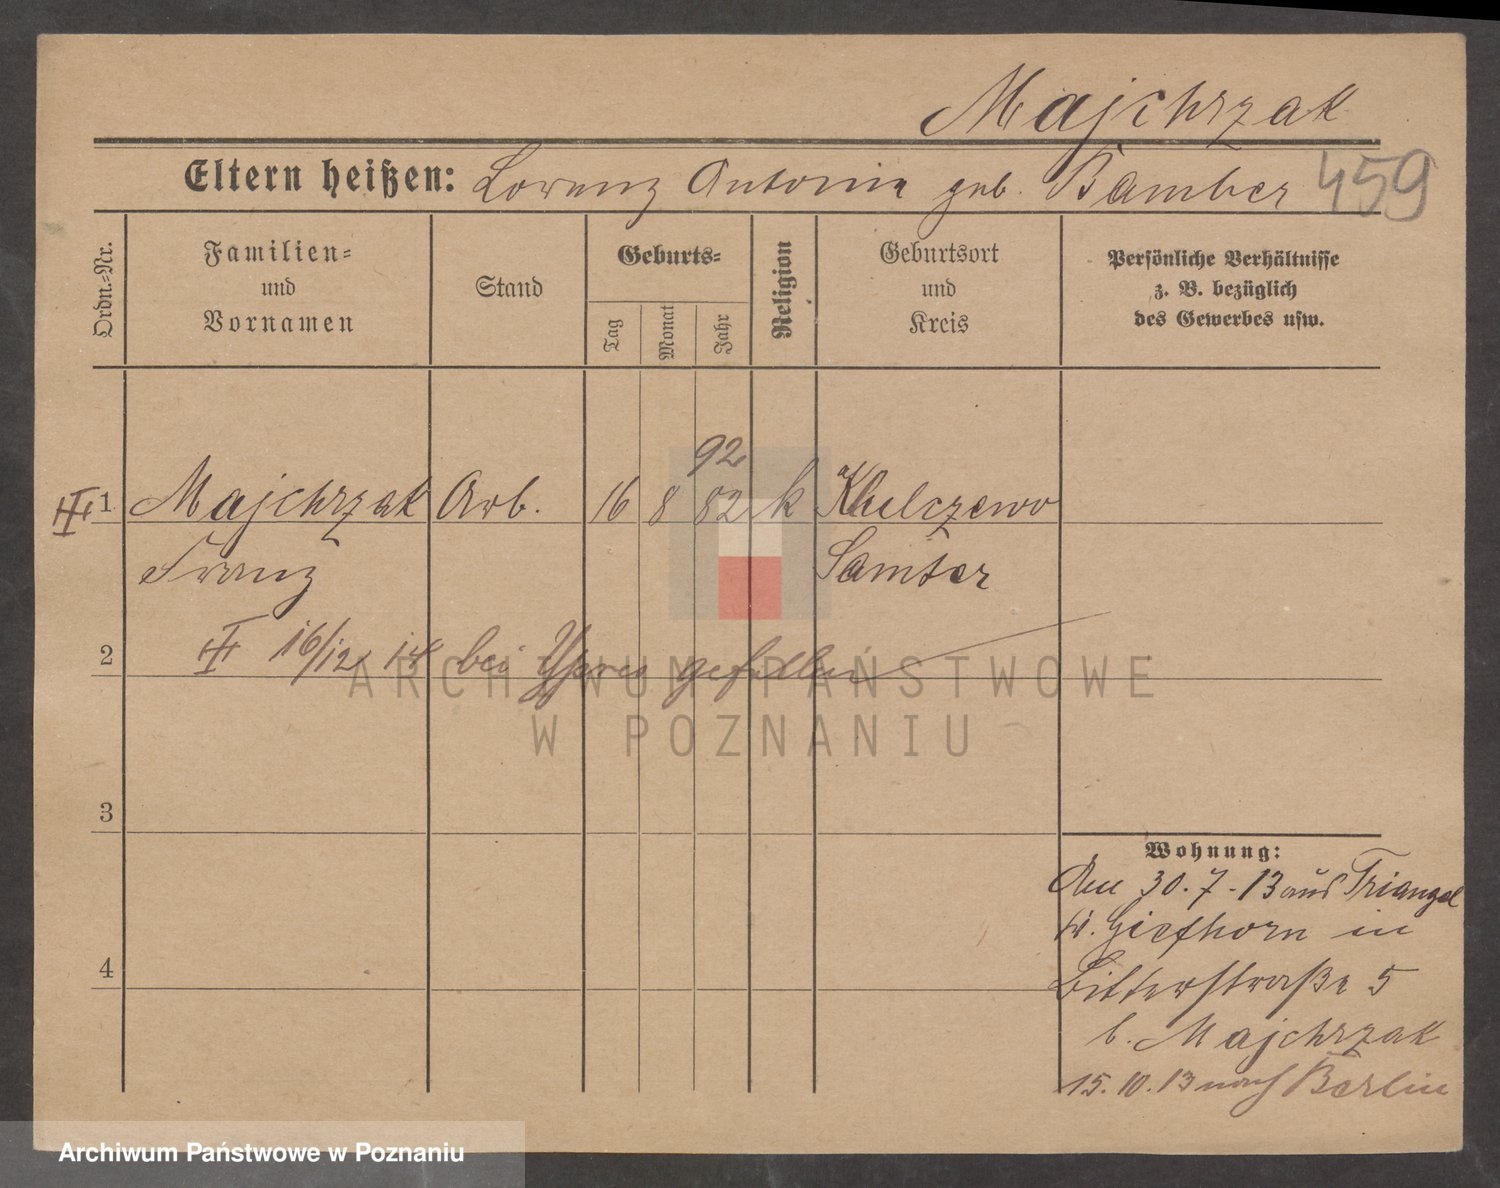 Majchrzak
459
Eltern heißen: Lorenz Antonie geb. Bamber
Ordn.-Nr.
Familien-
und
Vornamen
Stand
Geburts-
Tag
Monat
Jahr
Religion
Geburtsort
und
Kreis
Persönliche Verhältnisse
z. B. bezüglich
des Gewerbes usw.
92
1 Majchrzak Arb. 16 8 82 k
Franz Samter
2 16/12 14 bei Ypres gefallen
ARCHIWUM PAŃSTWOWE
W POZNANIU
3
Wohnung:
Am 30.7.13 aus Triangel
Kr. Giefhorn in
4 Bitterstraße 5
b. Majchrzak
15.10.13 nach Berlin
Archiwum Państwowe w Poznaniu